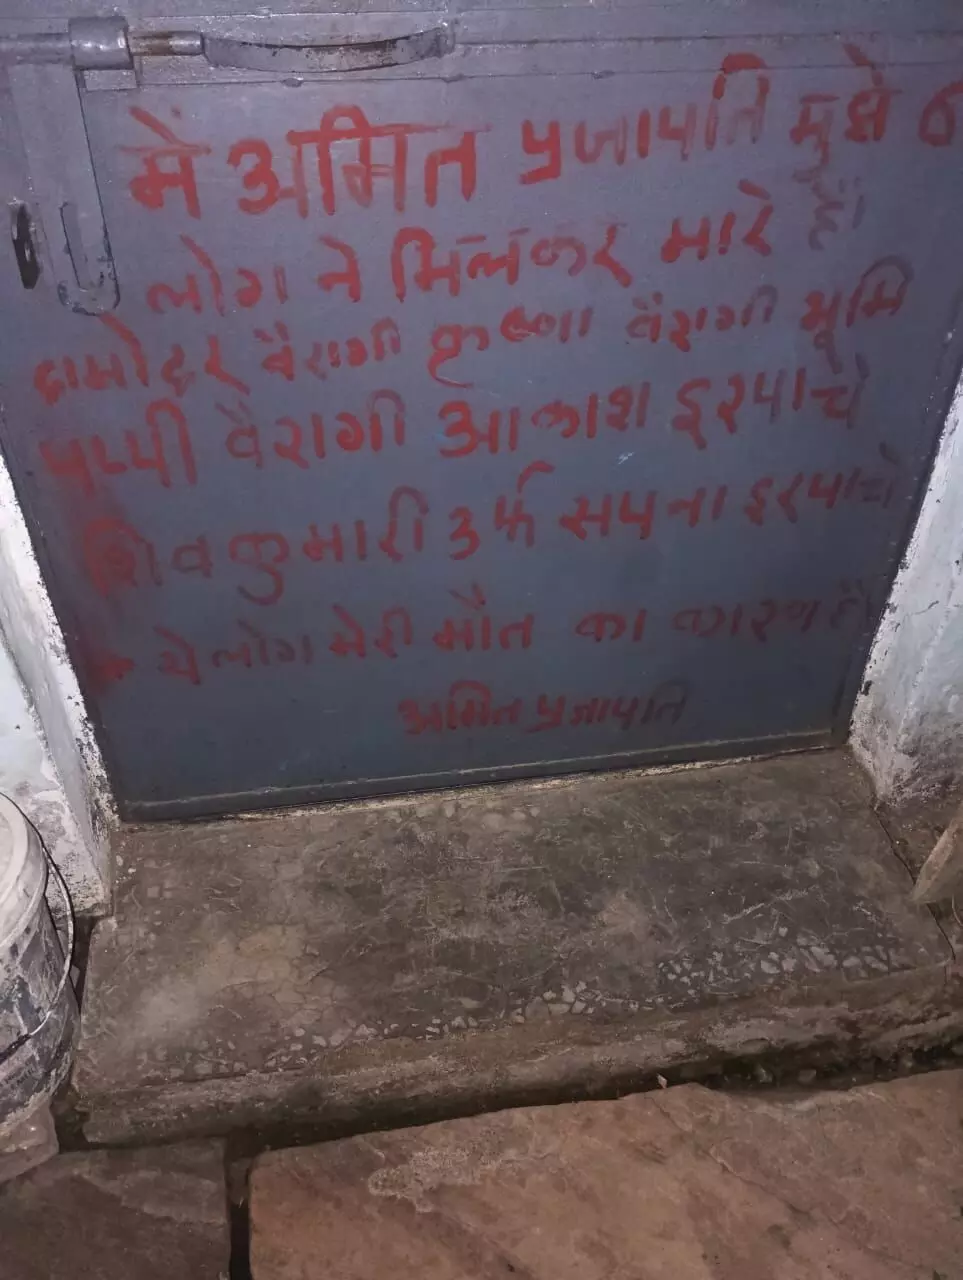 में अमित प्रजापति मुझे 6
लोग ने मिलकर मारे हैं
दामोदर वैरागी कृष्णा वैरागी भूमि
पप्पी वैरागी आकाश इरपाचे
शिवकुमारी उर्फ सपना इरपाचे
ये लोग मेरी मौत का कारण है
अमित प्रजापति